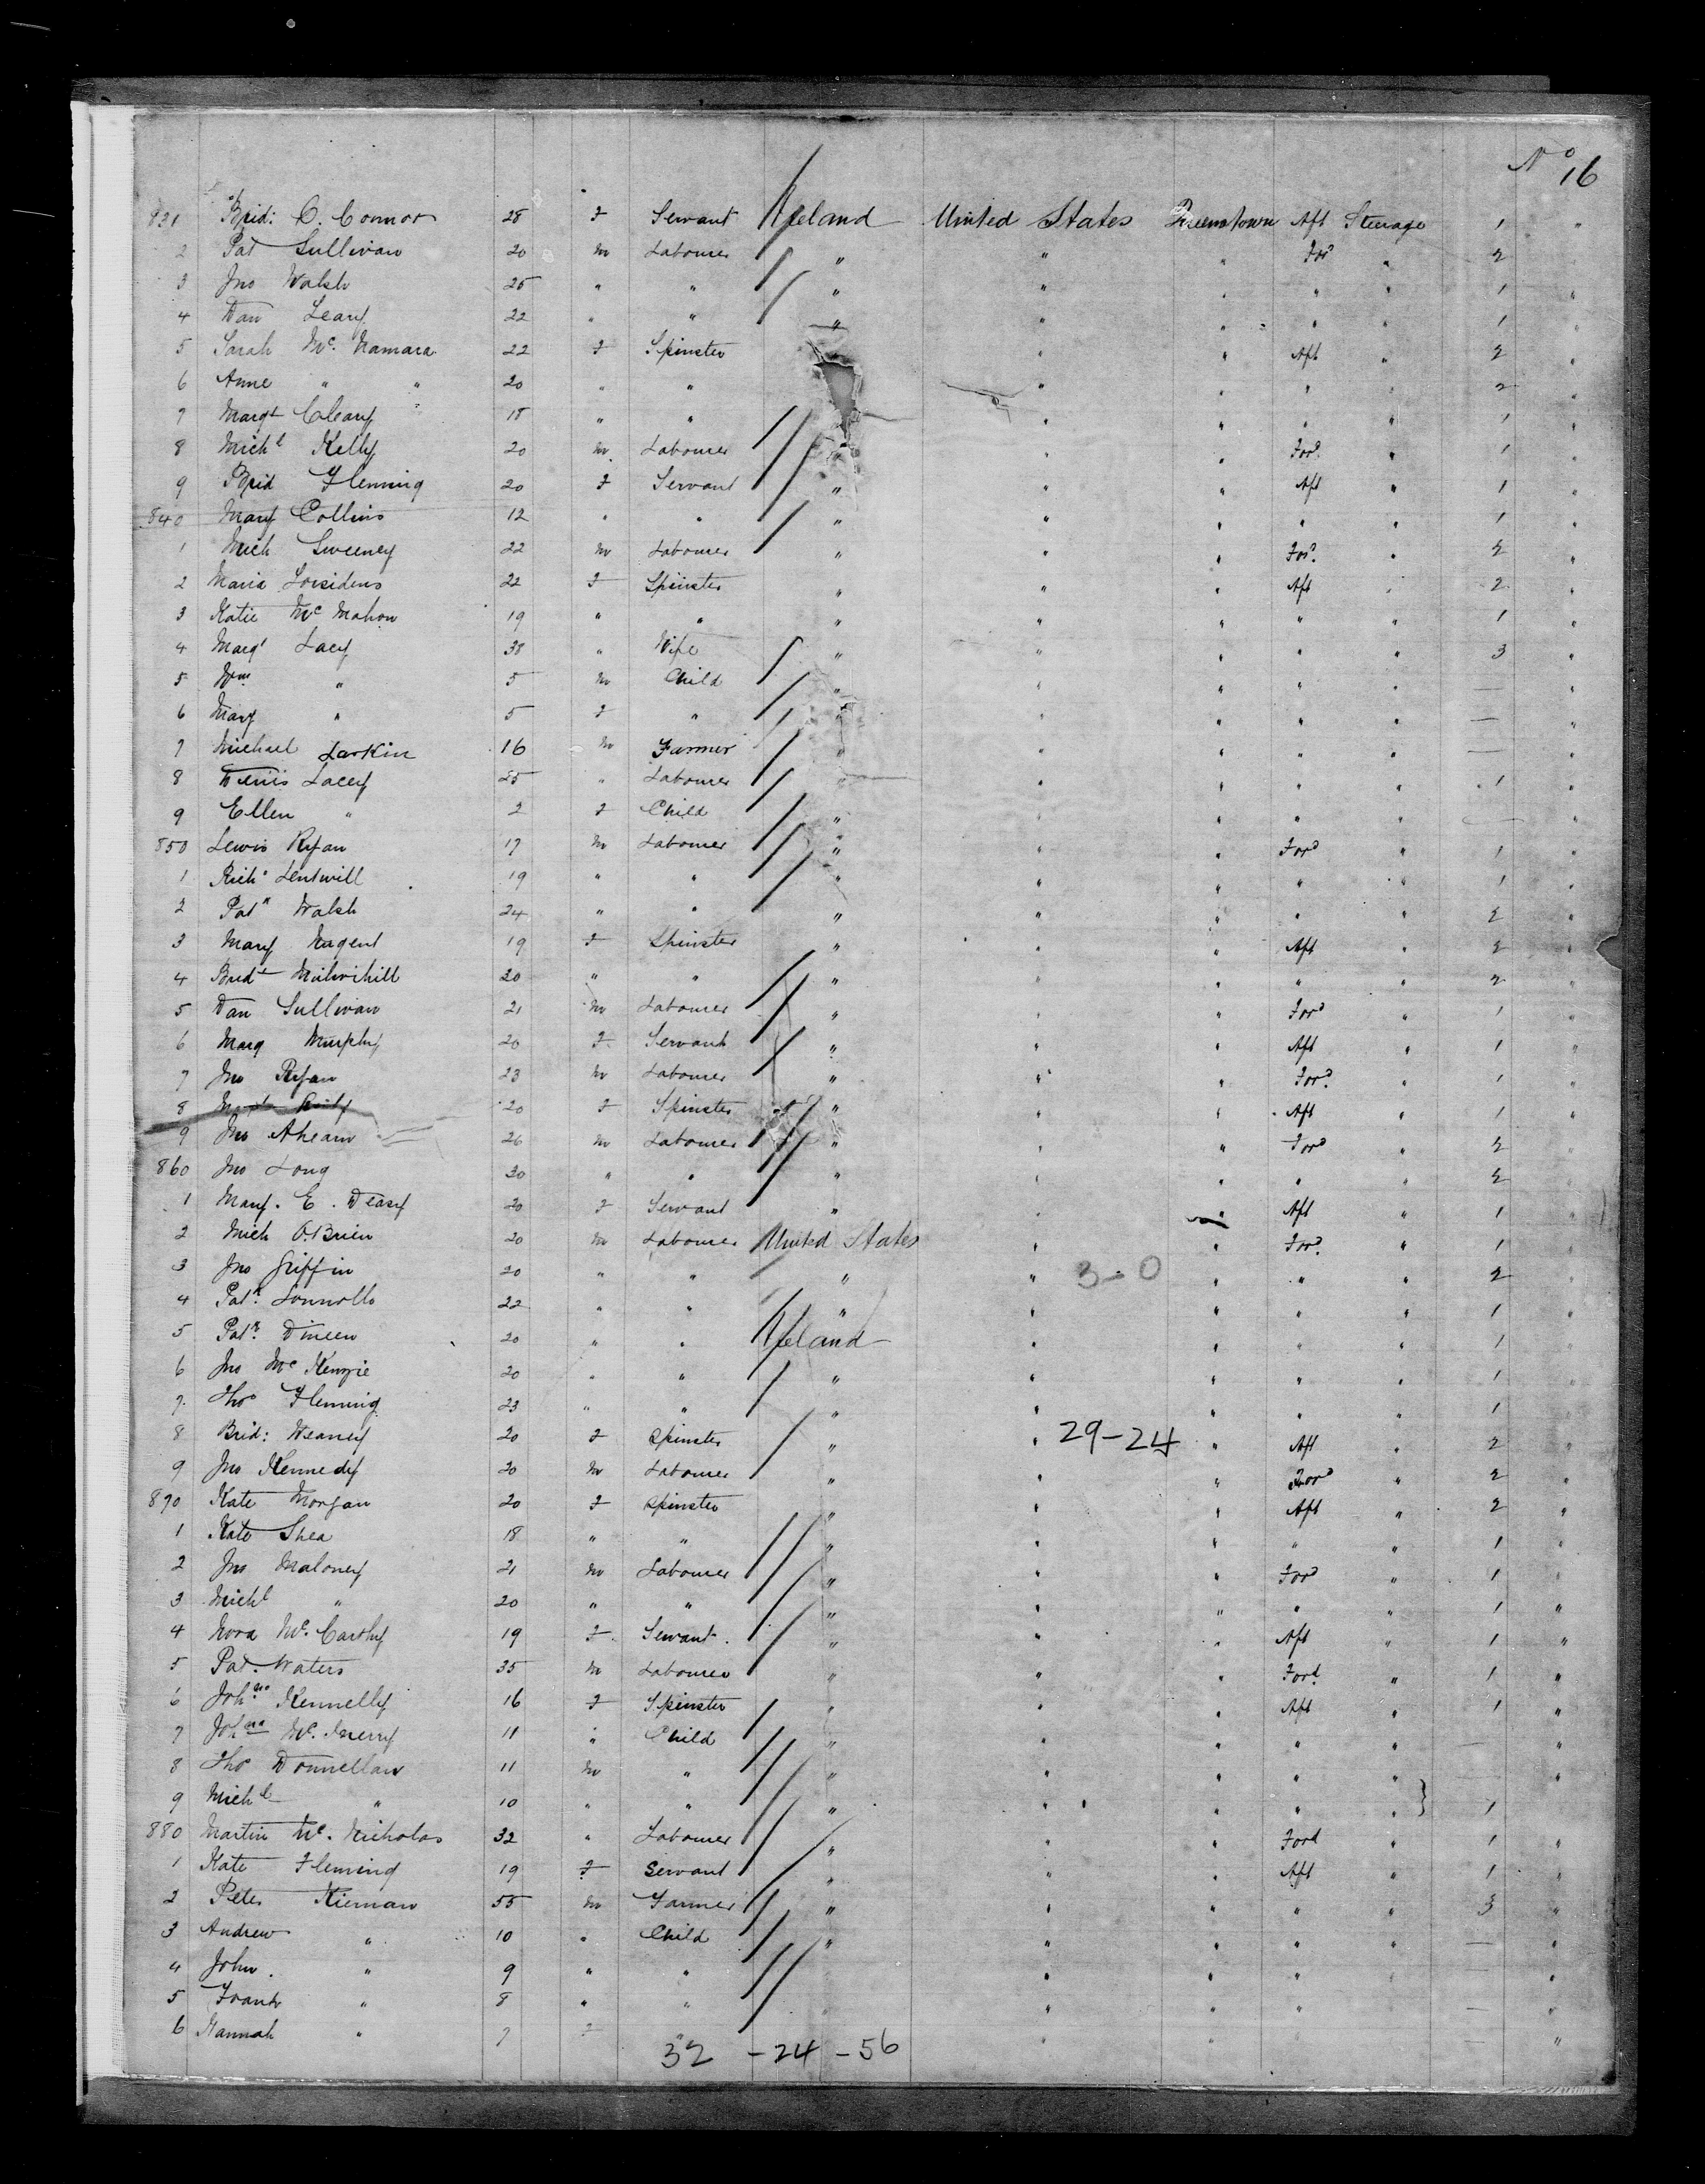 No 16
831 Brid: O. Connor 28 F Servant Ireland United States Queenstown Aft Steerage 1 "
2 Pat Sullivan 20 M Labourer " " " For^d " 2
3 Jno Walsh 25 " " " " " " " 1 "
4 Dan Leary 22 " " " " " " " 1 "
5 Sarah Mc. Namara 22 F Spinster " " Aft " 2 "
6 Anne " " 20 " " " " " " 2 "
7 Margt Cleary 18 " " " " " " 1 "
8 Mich^l Kelly 20 M. Labourer " " " For^d " 1 "
9 Brid Fleming 20 F Servant " " " Aft " 1 "
840 Mary Collins 12 " " " " " " " 1 "
1 Mich Sweeney 22 M Labourer " " " For^d " 2 "
2 Maria 22 F Spinster " " " Aft " 2 "
3 Katie Mc Mahon 19 " " " " " " " 1 "
4 Marg^t Lacy 38 " Wife " " " " " 3 "
5 Wm " 5 M Child " " " " " — "
6 Mary " 5 F " " " " " " — "
7 Michael Larkin 16 M Farmer " " " " " — "
8 Denis Lacey 25 " Labourer " " " " " 1 "
9 Ellen " 2 F Child " " " " " — "
850 Lewis Ryan 17 M Labourer " " " For^d " 1 "
1 Rich^d Lentwill 19 " " " " " " " 1 "
2 Pat^k Walsh 24 " " " " " " " 2 "
3 Mary Nugent 19 F Spinster " " " Aft " 2 "
4 Brid^t 20 " " " " " " " 2 "
5 Dan Sullivan 21 M Labourer " " " For^d " 1 "
6 Marg Murphy 20 F Servant " " " Aft " 1 "
7 Jno Ryan 23 M Labourer " " " For^d " 1 "
8 20 F Spinster " " " Aft " 1 "
9 Jno Ahearn 26 M Labourer " " " For^d " 2 "
860 Jno Long 30 " " " " " " " 2 "
1 Mary. E. Deasy 20 F Servant " " " Aft " 1 "
2 Mich O.Brien 20 M Labourer United States " " For^d " 1 "
3 Jno Griffin 20 " " " " 3-0 " " " 2 "
4 Pat^k 22 " " " " " " " 1 "
5 Pat^k Dineen 20 " " Ireland " " " " 1 "
6 Jno Mc Kenzie 20 " " " " " " " 1 "
7. Tho^s Fleming 23 " " " " " " " 1 "
8 Brid: 20 F Spinster " " 29-24 " Aft " 2 "
9 Jno Kennedy 20 M Labourer " " " For^d " 2 "
870 Kate Morgan 20 F Spinster " " " Aft " 2 "
1 Kate Shea 18 " " " " " " " 1 "
2 Jno Maloney 21 M Labourer " " " For^d " 1 "
3 Mich^l " 20 " " " " " " " 1 "
4 Nora Mc. Carthy 19 F. Servant. " " " Aft " 1 "
5 Pat. Waters 35 M Labourer " " " Ford " 1 "
6 Joh^na Kennelly 16 F Spinster " " " Aft " 1 "
7 Joh^na 11 " Child " " " " " — "
8 Tho^s Donnellan 11 M " " " " " " — "
9 Mich^l " 10 " " " " " " " } 1
880 Martin Mc. Nicholas 32 " Labourer " " " Ford " 1 "
1 Kate Fleming 19 F Servant " " " Aft " 1 "
2 Peter Kiernan 55 M Farmer " " " " " 3 "
3 Andrew " 10 " Child " " " " " — "
4 John. " 9 " " " " " — "
5 Frank " 8 " " " " " — "
6 Hannah " 7 F " " " — "
32 - 24 - 56